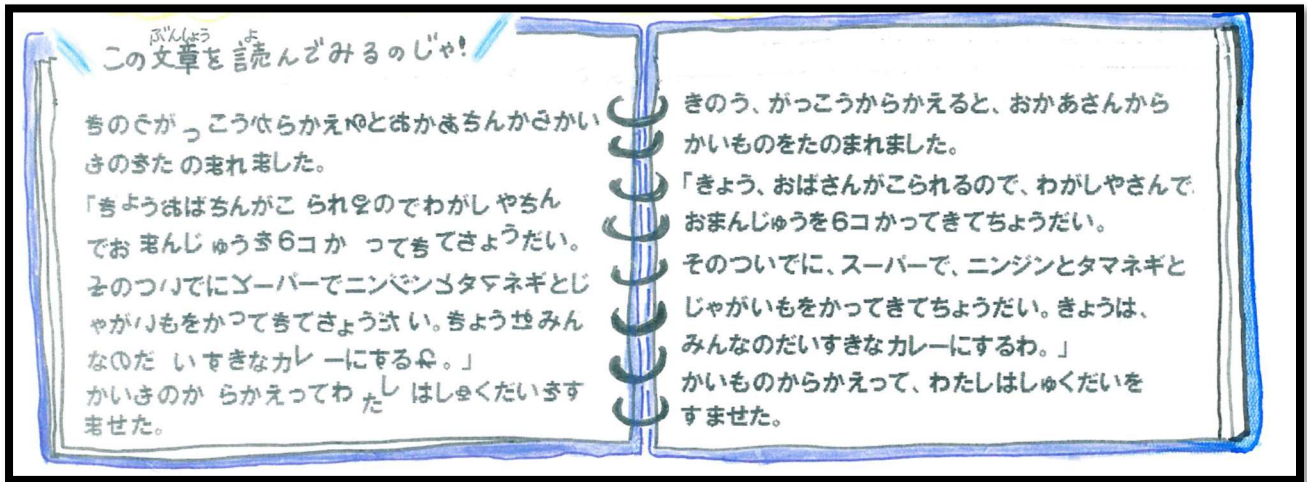 この文章を読んでみるのじゃ!
ぶんしょう よ
ちのぐがっこう らかえ とおかあちんかさかい
たの れ した。
「ちようおばちんがこ られ のでわがし やちん
でお んじ ゅう 6コ か って てさょうだい。
のつ でに ーパーでニン ン タ ネギとじ
ゃが もをかって てさょう い。ちょう みん
な だ い きなカレーに る 。」
かい のか らかえってわ たし はし くだい す
せた。
きのう、がっこうからかえると、おかあさんから
かいものをたのまれました。
「きょう、おばさんがこられるので、わがしやさんで
おまんじゅうを6コかってきてちょうだい。
そのついでに、スーパーで、ニンジンとタマネギと
じゃがいもをかってきてちょうだい。きょうは、
みんなのだいすきなカレーにするわ。」
かいものからかえって、わたしはしゅくだいを
すませた。